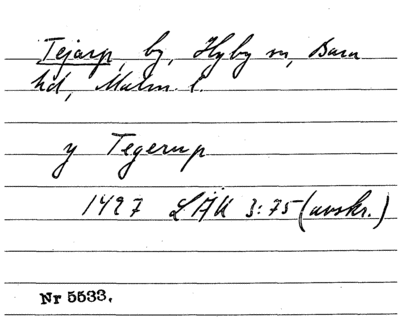 Tejarp, by, Hyby sn, Bara
hd, Malm. l.
y Tegerup
1427 LÄU 3:75 (avskr.)
Nr 5533.